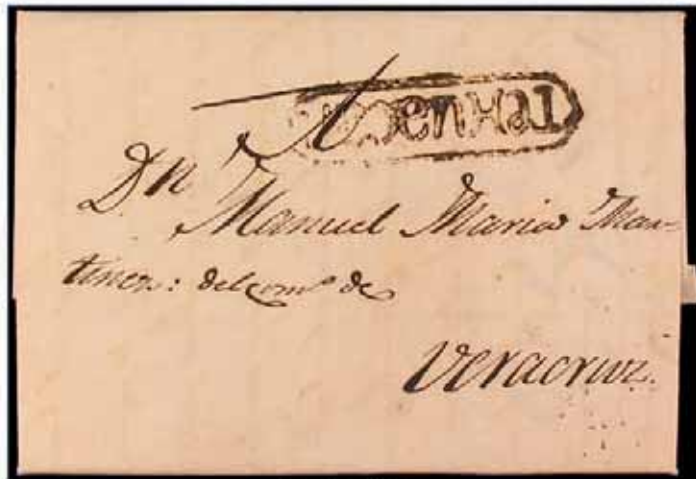 TeHuacan
Dn
Manuel Maria Mar-
tinez: del comº de
Veracruz.